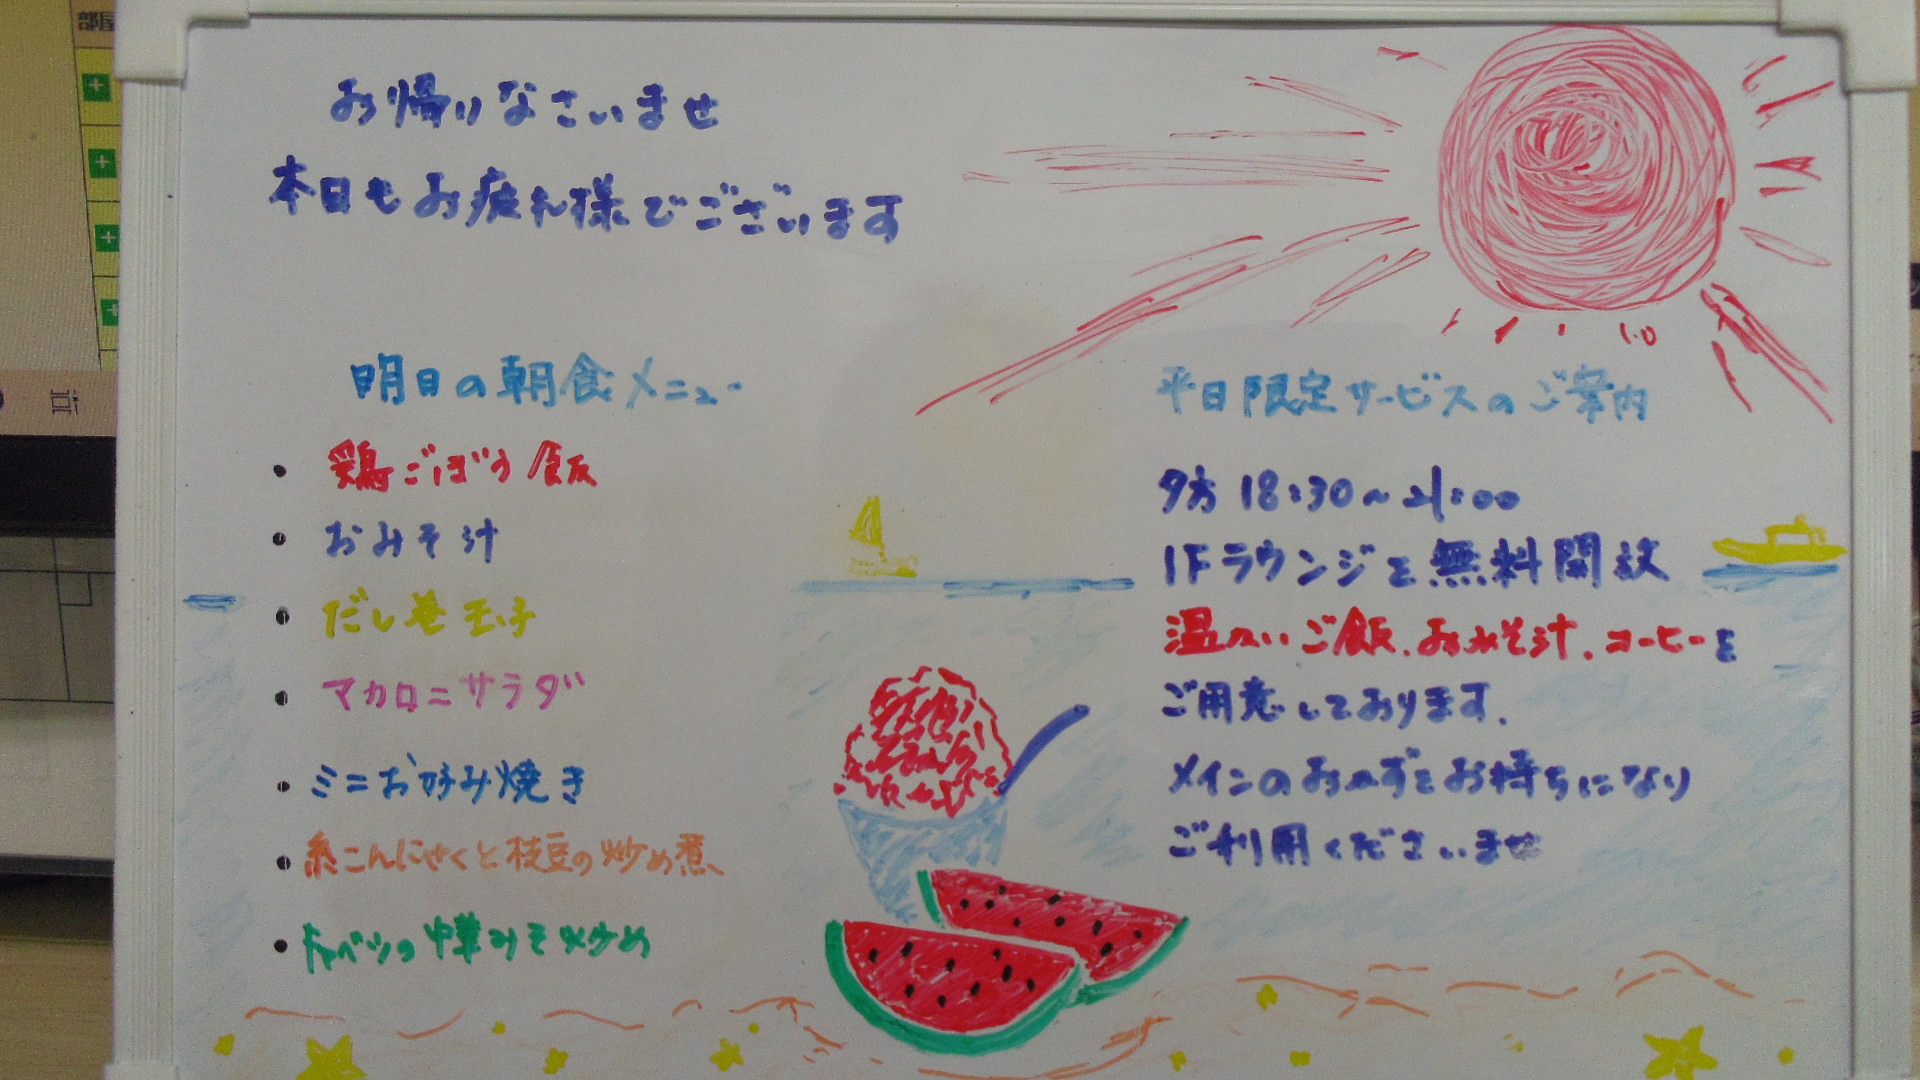 部屋
お帰りなさいませ
本日もお疲れ様でございます
明日の朝食メニュー
• 鶏ごぼう飯
• おみそ汁
• だし巻玉子
• マカロニサラダ
• ミニお好み焼き
• 糸こんにゃくと枝豆の炒め煮
• キャベツの中華みそ炒め
平日限定サービスのご案内
夕方 18:30~21:00
1Fラウンジを無料開放
温かいご飯、おみそ汁、コーヒーを
ご用意しております。
メインのおかずをお持ちになり
ご利用くださいませ